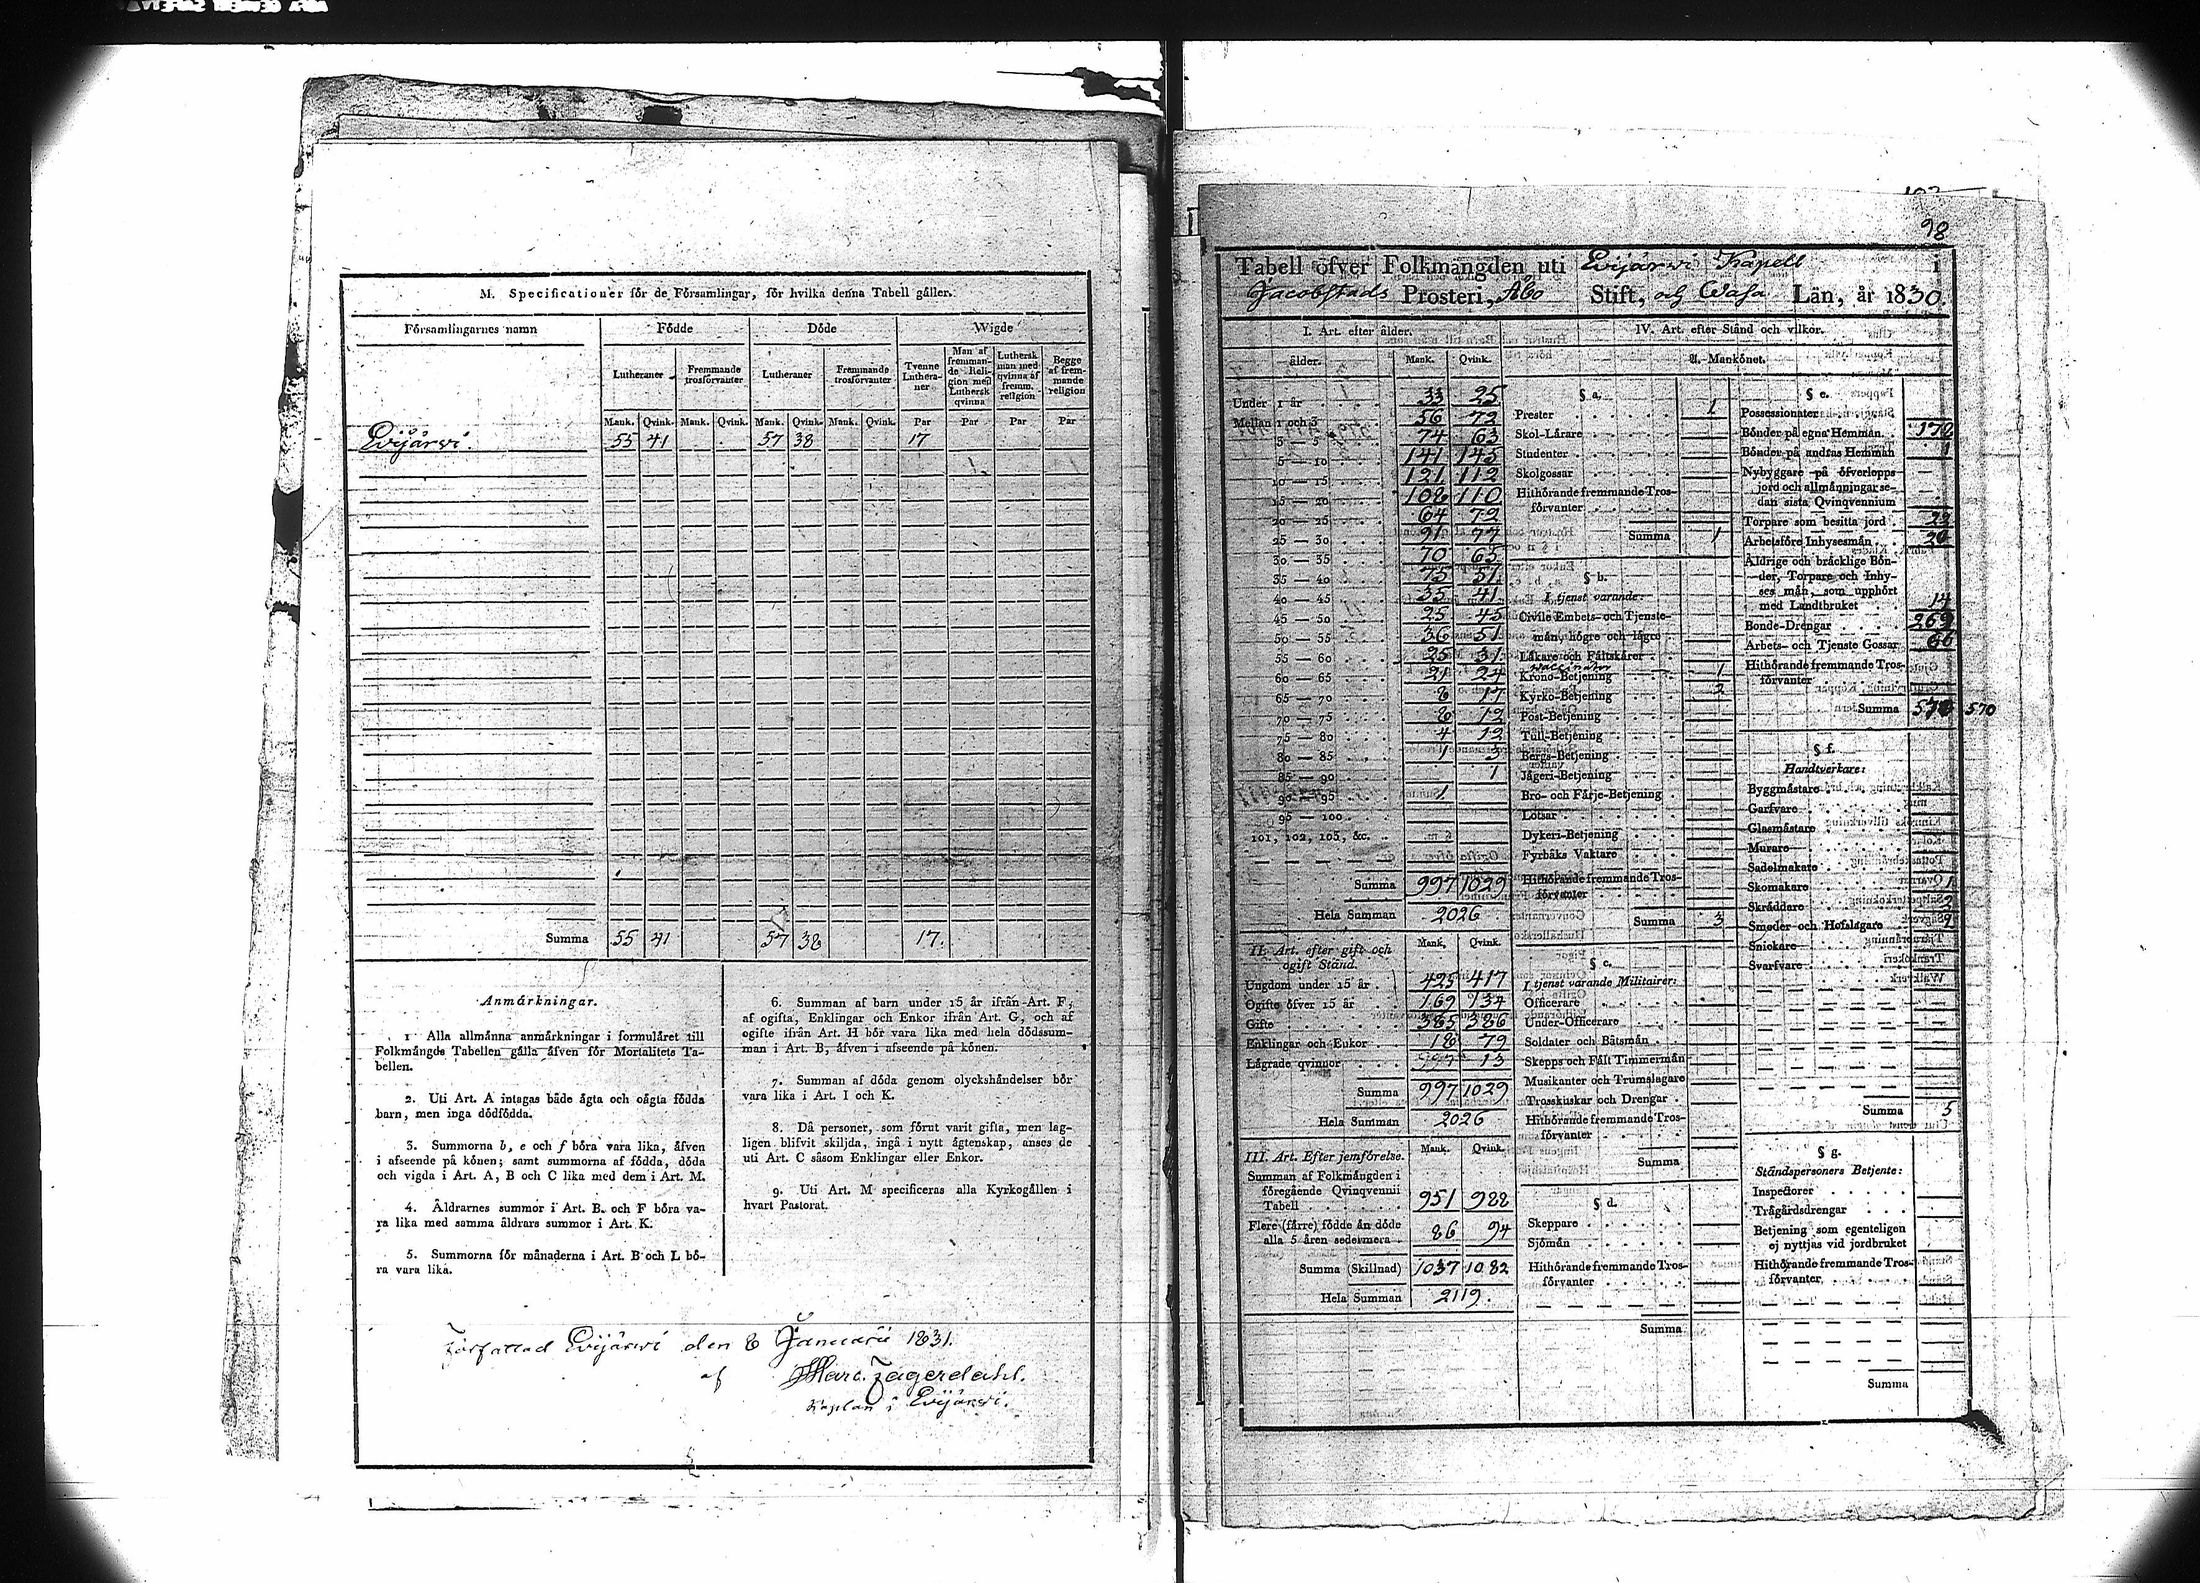 M. Specificationer för de Församlingar, för hvilka denna Tabell gäller.
Församlingarnes namn
Födde
Döde
Wigde
Lutheraner
Fremmande trosförvanter
Lutheraner
Fremmande trosförvanter
Tvenne Lutheraner
Man af fremmande Religion med Luthersk qvinna
Luthersk man med qvinna af fremm. religion
Begge af fremmande religion
Mank. Qvink. Mank. Qvink. Mank. Qvink. Mank. Qvink. Par Par Par Par
Evijärwi. 55 41 57 38 17
Summa 55 41 57 38 17.
Anmärkningar.
1. Alla allmänna anmärkningar i formuläret till
Folkmängds Tabellen gälla äfven för Mortalitets Ta-
bellen.
2. Uti Art. A intagas både ägta och oägta födda
barn, men inga dödfödda.
3. Summorna b, e och f böra vara lika, äfven
i afseende på könen; samt summorna af födda, döda
och vigda i Art. A, B och C lika med dem i Art. M.
4. Äldrarnes summor i Art. B. och F böra va-
ra lika med samma äldrars summor i Art. K.
5. Summorna för månaderna i Art. B och L bö-
ra vara lika.
6. Summan af barn under 15 år ifrån Art. F,
af ogifta, Enklingar och Enkor ifrån Art. G, och af
ogifte ifrån Art. H bör vara lika med hela dödssum-
man i Art. B, äfven i afseende på könen.
7. Summan af döda genom olyckshändelser bör
vara lika i Art. I och K.
8. Då personer, som förut varit gifta, men lag-
ligen blifvit skiljda, ingå i nytt ägtenskap, anses de
uti Art. C såsom Enklingar eller Enkor.
9. Uti Art. M specificeras alla Kyrkogällen i
hvart Pastorat.
Författad Evijärwi den 8 Januarii 1831.
af
Kaplan i Evijärwi.
98
Tabell öfver Folkmängden uti Evijärwi Kapell i
Jacobstads Prosteri, Åbo Stift, och Wasa Län, år 1830.
I. Art. efter ålder.
ålder. Mank. Qvink.
Under 1 år 33 25
Mellan 1 och 3 56 72
3 — 5 74 63
5 — 10 141 145
10 — 15 121 112
15 — 20 108 110
20 — 25 64 72
25 — 30 91 77
30 — 35 70 65
35 — 40 75 51
40 — 45 35 41
45 — 50 25 45
50 — 55 36 51
55 — 60 25 31
60 — 65 21 24
65 — 70 8 17
70 — 75 8 12
75 — 80 4 12
80 — 85 1 3
85 — 90 1
90 — 95 1
95 — 100
101, 102, 103, &c.
Summa 997 1029
Hela Summan 2026
II. Art. efter gift och
ogift Stånd. Mank. Qvink.
Ungdom under 15 år 425 417
Ogifte öfver 15 år 169 134
Gifte 385 386
Enklingar och Enkor 18 79
Lägrade qvinnor 13
Summa 997 1029
Hela Summan 2026
III. Art. Efter jemförelse. Mank. Qvink.
Summan af Folkmängden i
föregående Qvinqvennii
Tabell 951 988
Flere (färre) födde än döde
alla 5 åren sedermera 86 94
Summa (Skillnad) 1037 1082
Hela Summan 2119.
IV. Art. efter Stånd och vilkor.
A. Mankönet.
§ a.
Prester 1
Skol-Lärare
Studenter
Skolgossar
Hithörande fremmande Tros-
förvanter
Summa 1
§ b.
I tjenst varande:
Civile Embets- och Tjenste-
män, högre och lägre
Läkare och Fältskärer
Waccinator
Krono-Betjening 1
Kyrko-Betjening 2
Post-Betjening
Tull-Betjening
Bergs-Betjening
Jägeri-Betjening
Bro- och Färje-Betjening
Lotsar
Dykeri-Betjening
Fyrbåks Vaktare
Hithörande fremmande Tros-
förvanter
Summa 3
§ c.
I tjenst varande Militairer:
Officerare
Under-Officerare
Soldater och Båtsmän
Skepps och Fält Timmermän
Musikanter och Trumslagare
Trosskuskar och Drengar
Hithörande fremmande Tros-
förvanter
Summa
§ d.
Skeppare
Sjömän
Hithörande fremmande Tros-
förvanter
Summa
§ e.
Possessionater
Bönder på egna Hemman 172
Bönder på andras Hemman 1
Nybyggare på öfverlopps
jord och allmänningar se-
dan sista Qvinqvennium
Torpare som besitta jord
Arbetsföre Inhysesmän
Äldrige och bräcklige Bön-
der, Torpare och Inhy-
ses män, som upphört
med Landtbruket 14
Bonde-Drengar 269
Arbets- och Tjenste Gossar 66
Hithörande fremmande Tros-
förvanter
Summa 570
§ f.
Handtverkare:
Byggmästare
Garfvare
Glasmästare
Murare
Sadelmakare
Skomakare 1
Skräddare 2
Smeder och Hofslagare 2
Snickare
Svarfvare
Summa 5
§ g.
Ståndspersoners Betjente:
Inspectorer
Trägårdsdrengar
Betjening som egenteligen
ej nyttjas vid jordbruket
Hithörande fremmande Tros-
förvanter
Summa